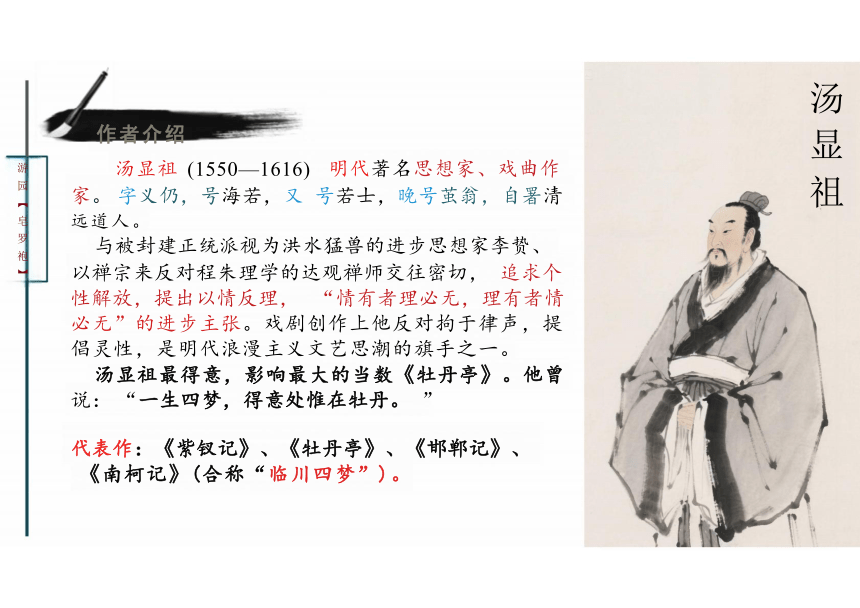 作者介绍
游园【皂罗袍】
汤显祖 (1550—1616) 明代著名思想家、戏曲作
家。字义仍，号海若，又 号若士，晚号茧翁，自署清
远道人。
与被封建正统派视为洪水猛兽的进步思想家李贽、
以禅宗来反对程朱理学的达观禅师交往密切， 追求个
性解放，提出以情反理， “情有者理必无，理有者情
必无”的进步主张。戏剧创作上他反对拘于律声，提
倡灵性，是明代浪漫主义文艺思潮的旗手之一。
汤显祖最得意，影响最大的当数《牡丹亭》。他曾
说： “一生四梦，得意处惟在牡丹。 ”
代表作：《紫钗记》、《牡丹亭》、《邯郸记》、
《南柯记》(合称“临川四梦”)。
汤显祖